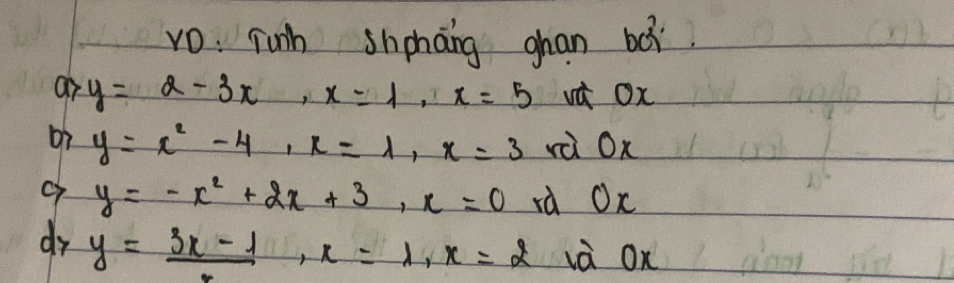 VD: Tính Shphẳng ghạn bởi:
a> y = 2 - 3x , x = 1 , x = 5 và Ox
b> y = x² - 4 , x = 1 , x = 3 và Ox
c> y = -x² + 2x + 3 , x = 0 và Ox
d> y = \frac{3x - 1}{x} , x = 1 , x = 2 và Ox